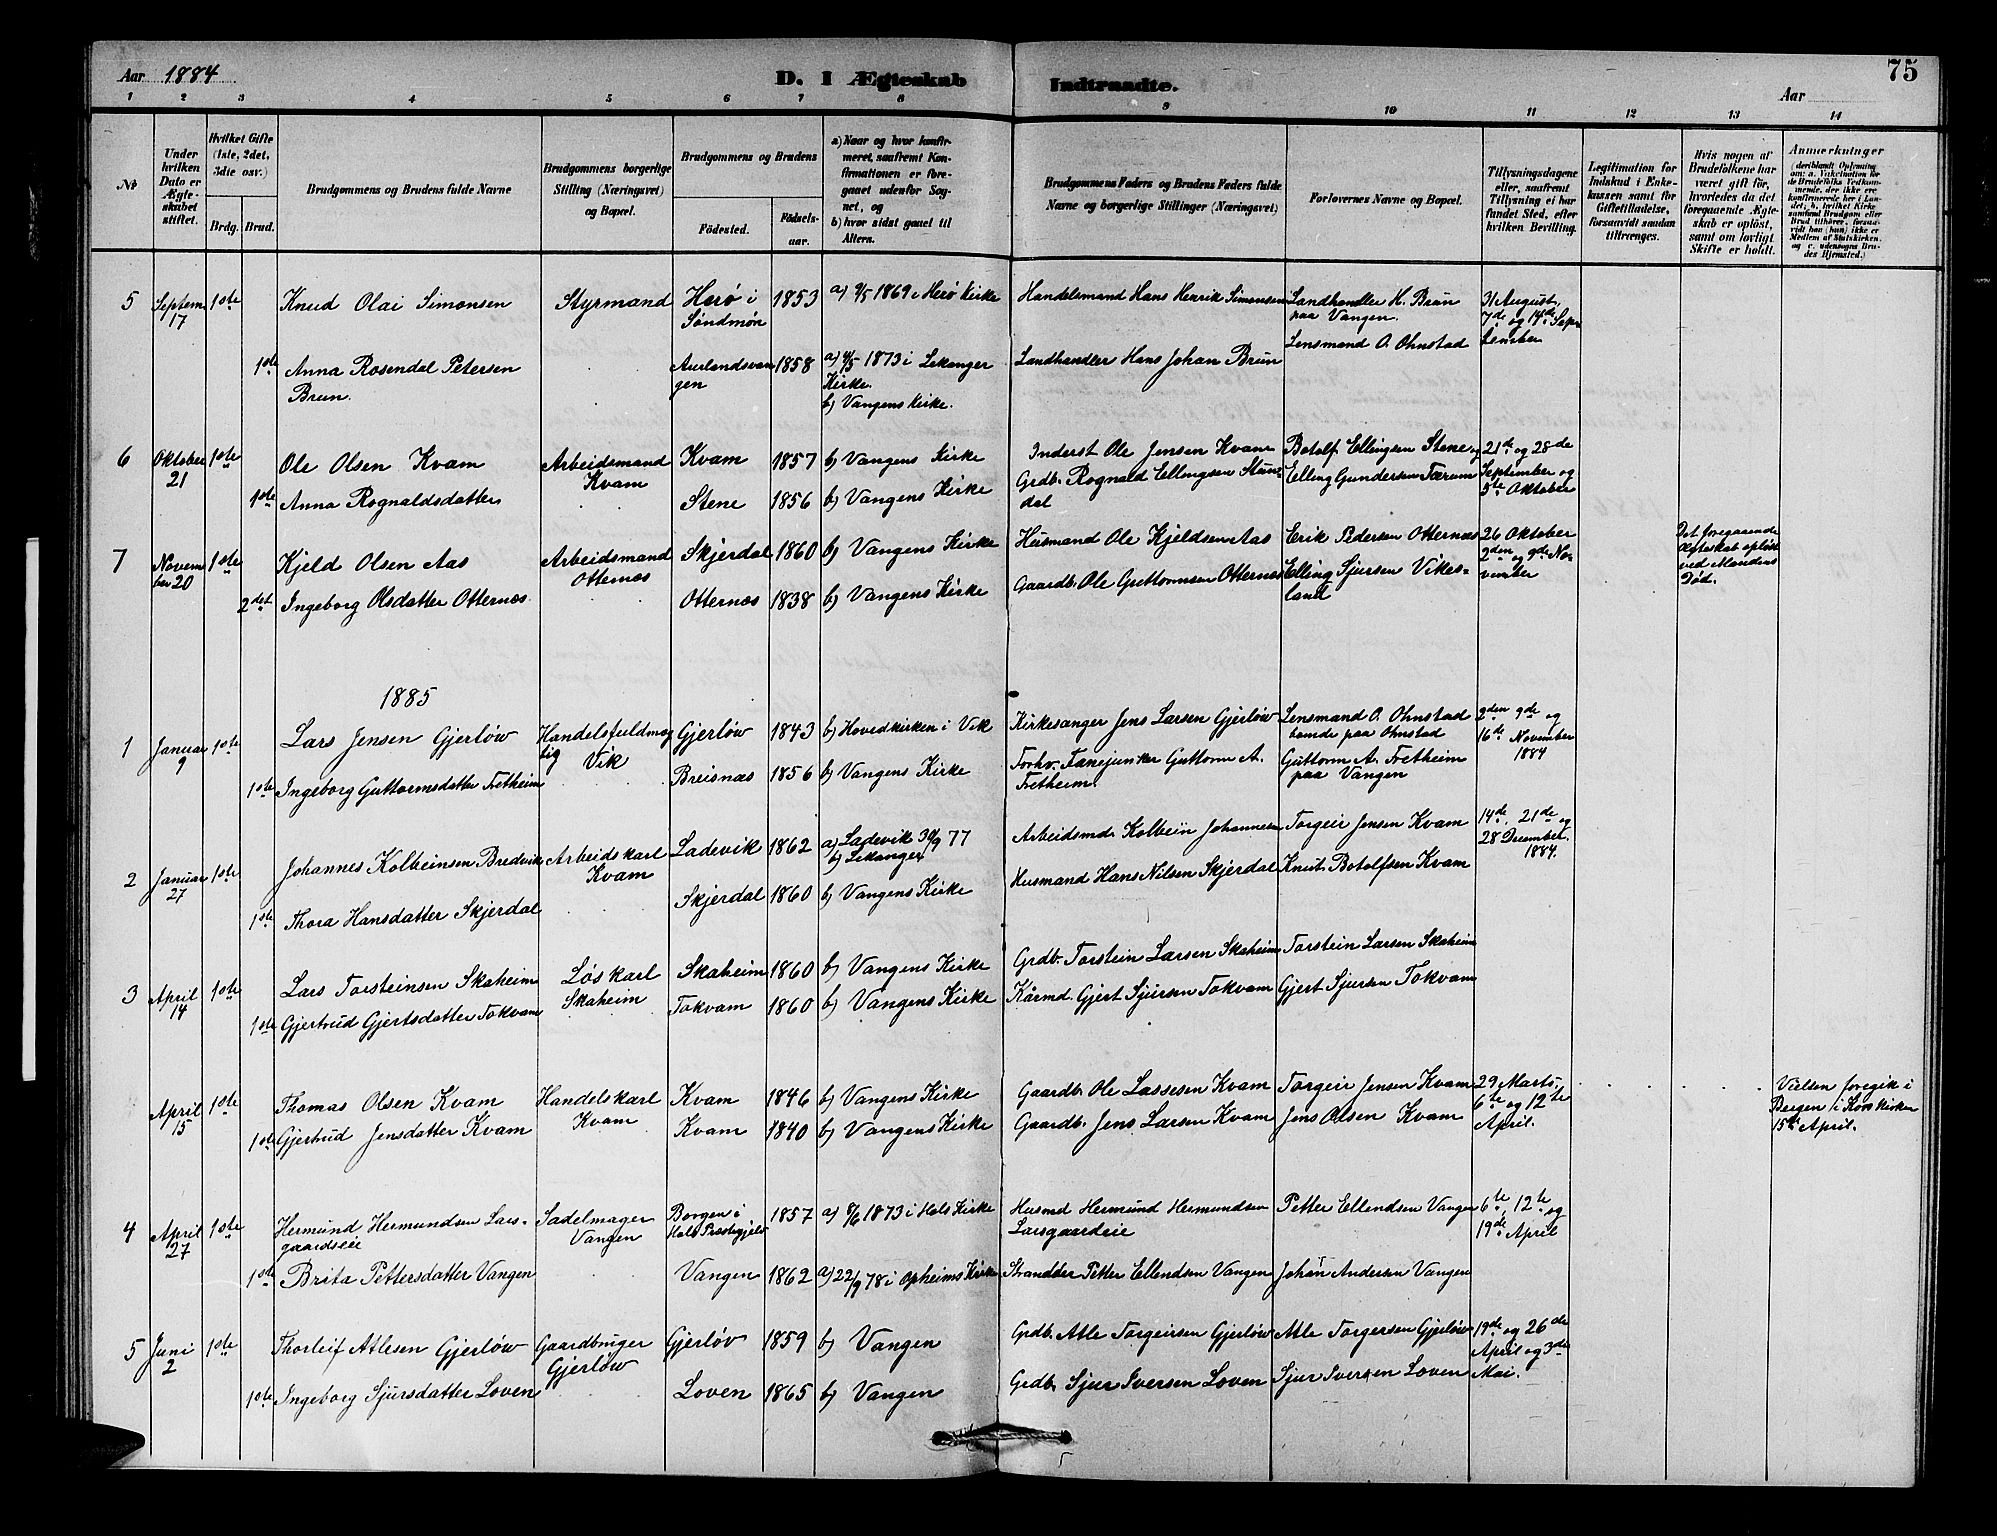 Aar 1884
D. I Ægteskab Indtraadte.
75
Aar
1 2 3 4 5 6 7 8 9 10 11 12 13 14
№
Under hvilken Dato er Ægteskabet stiftet.
Hvilket Gifte (1ste, 2det, 3die osv.)
Brdg. Brud.
Brudgommens og Brudens fulde Navne
Brudgommens borgerlige Stilling (Næringsvei) og Bopæl.
Brudgommens og Brudens
Fødested.
Fødselsaar.
a) Naar og hvor konfirmeret, saafremt Konfirmationen er foregaaet udenfor Sognet, og
b) hvor sidst gaaet til Alters.
Brudgommens Faders og Brudens Faders fulde Navne og borgerlige Stillinger (Næringsvei)
Forlovernes Navne og Bopæl.
Tillysningsdagene eller, saafremt Tillysning ei har fundet Sted, efter hvilken Bevilling.
Legitimation for Indskud i Enkekassen samt for Giftetilladelse, forsaavidt saadan tiltrænges.
Hvis nogen af Brudefolkene har været gift før, hvorledes da det foregaaende Ægteskab er opløst, samt om lovligt Skifte er holdt.
Anmærkninger (deriblandt Oplysning om: a. Vakcination for de Brudefolks Vedkommende, der ikke ere konfirmerede her i Landet; b. hvilket Kirkesamfund Brudgom eller Brud tilhører, forsaavidt han (hun) ikke er Medlem af Statskirken, og c. udensogns Brudes Hjemsted.)
5 Septem 17 1ste Knud Olai Simonsen Styrmand Herø i Søndmør 1853 a) 9/5 1869 i Herø Kirke Handelsmand Hans Henrik Simonsen Landhandler H. Brun paa Vangen. 31 August, 7de og 14de September
1ste Anna Rosendal Petersen Brun. Aurlandsvangen 1858 a) 4/5 1873 i Lekanger Kirke. b) Vangens Kirke. Landhandler Hans Johan Brun Lensmand O. Ohnstad
6 Oktober 21 1ste Ole Olsen Kvam Arbeidsmand Kvam Kvam 1857 b) Vangens Kirke Inderst Ole Jensen Kvam Botolf Ellingsen Stene og 21de og 28de September og 5te Oktober
1ste Anna Rognaldsdatter Stene 1856 b) Vangens Kirke Grdb. Rognald Ellingsen Stundal Elling Gundersen Tærum
7 November 20 1ste Kjeld Olsen Aas Arbeidsmand Otternæs Skjerdal 1860 b) Vangens Kirke Husmand Ole Kjeldsen Aas Erik Pedersen Otternæs 26 Oktober 2den og 9de November Det foregaaende Ægteskab opløst ved Mandens Død.
2det Ingeborg Olsdatter Otternæs Otternæs 1838 b) Vangens Kirke Gaardb. Ole Guttormsen Otternæs Elling Sjursen Vikesland
1885
1 Januar 9 1ste Lars Jensen Gjerløw Handelsfuldmægtig Vik Gjerløw 1843 b) Hovedkirken i Vik Kirkesanger Jens Larsen Gjerløw Lensmand O. Ohnstad boende paa Ohnstad 2den 9de og 16de November 1884
1ste Ingeborg Guttormsdatter Fretheim Breisnæs 1856 b) Vangens Kirke Forhv. Fanejunker Guttorm A. Fretheim. Guttorm A. Fretheim paa Vangen
2 Januar 27 1ste Johannes Kolbeinsen Bredvik Arbeidskarl Kvam Ladevik 1862 a) Ladevik 30/9 77 b) Lekanger Arbeidsmd. Kolbein Johannesen Torgeir Jensen Kvam 14de, 21de og 28 December. 1884.
1ste Thora Hansdatter Skjerdal Skjerdal 1860 b) Vangens Kirke Husmand Hans Nilsen Skjerdal Knut Botolfsen Kvam
3 April 14 1ste Lars Torsteinsen Skaheim Løskarl Skaheim Skaheim 1860 b) Vangens Kirke Grdb. Torstein Larsen Skaheim Torstein Larsen Skaheim
1ste Gjertrud Gjertsdatter Tokvam Tokvam 1860 b) Vangens Kirke Kårmd. Gjert Sjursen Tokvam Gjert Sjursen Tokvam
April 15 1ste Thomas Olsen Kvam Handelskarl Kvam Kvam 1846 b) Vangens Kirke Gaardb. Ole Lassesen Kvam Torgeir Jensen Kvam 29 Marts, 6te og 12te April. Vielsen foregik i Bergen i Korskirken 15de April.
1ste Gjertrud Jensdatter Kvam Kvam 1840 b) Vangens Kirke Gaardb. Jens Larsen Kvam Jens Olsen Kvam
4 April 27 1ste Hermund Hermundsen Larsgaardseie Sadelmager Vangen Borgen i Hols Præstegjeld 1857 a) 8/6 1873 i Hols Kirke Husmd Hermund Hermundsen Larsgaardeie Petter Ellendsen Vangen 6te, 12te og 19de April
1ste Brita Pettersdatter Vangen Vangen 1862 a) 22/9 78 i Opheims Kirke Strandsdr Petter Ellendsen Vangen Johan Andersen Vangen
5 Juni 2 1ste Thorleif Atlesen Gjerløw Gaardbruger Gjerløw Gjerløv 1859 b) Vangen Grdb. Atle Torgeirsen Gjerløw Atle Torgersen Gjerløw 19de og 26de April og 3de Mai.
1ste Ingeborg Sjursdatter Loven Loven 1865 b) Vangen Grdb. Sjur Iversen Loven Sjur Iversen Loven